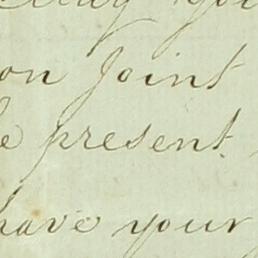 on Joint
e present.
have your